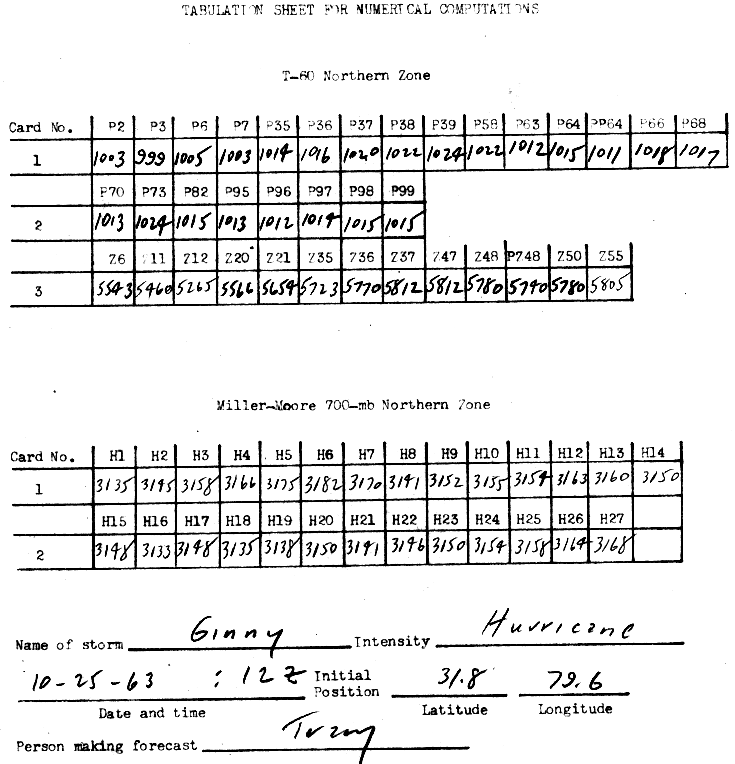 TABULATION SHEET FOR NUMERICAL COMPUTATIONS
T-60 Northern Zone
Card No. P2 P3 P6 P7 P35 P36 P37 P38 P39 P58 P63 P64 PP64 P66 P68
1 1003 999 1005 1003 1014 1016 1020 1022 1024 1022 1012 1015 1011 1018 1017
P70 P73 P82 P95 P96 P97 P98 P99
2 1013 1024 1015 1013 1012 1014 1015 1015
Z6 Z11 Z12 Z20 Z21 Z35 Z36 Z37 Z47 Z48 PZ48 Z50 Z55
3 5543 5460 5265 5566 5654 5723 5770 5812 5812 5780 5740 5780 5805
Miller-Moore 700-mb Northern Zone
Card No. H1 H2 H3 H4 H5 H6 H7 H8 H9 H10 H11 H12 H13 H14
1 3135 3145 3158 3166 3175 3182 3170 3141 3152 3155 3154 3163 3160 3150
H15 H16 H17 H18 H19 H20 H21 H22 H23 H24 H25 H26 H27
2 3148 3133 3148 3135 3138 3150 3141 3146 3150 3154 3158 3164 3168
Name of storm Ginny Intensity Hurricane
10-25-63 : 12Z Initial Position 31.8 79.6
Date and time Latitude Longitude
Person making forecast